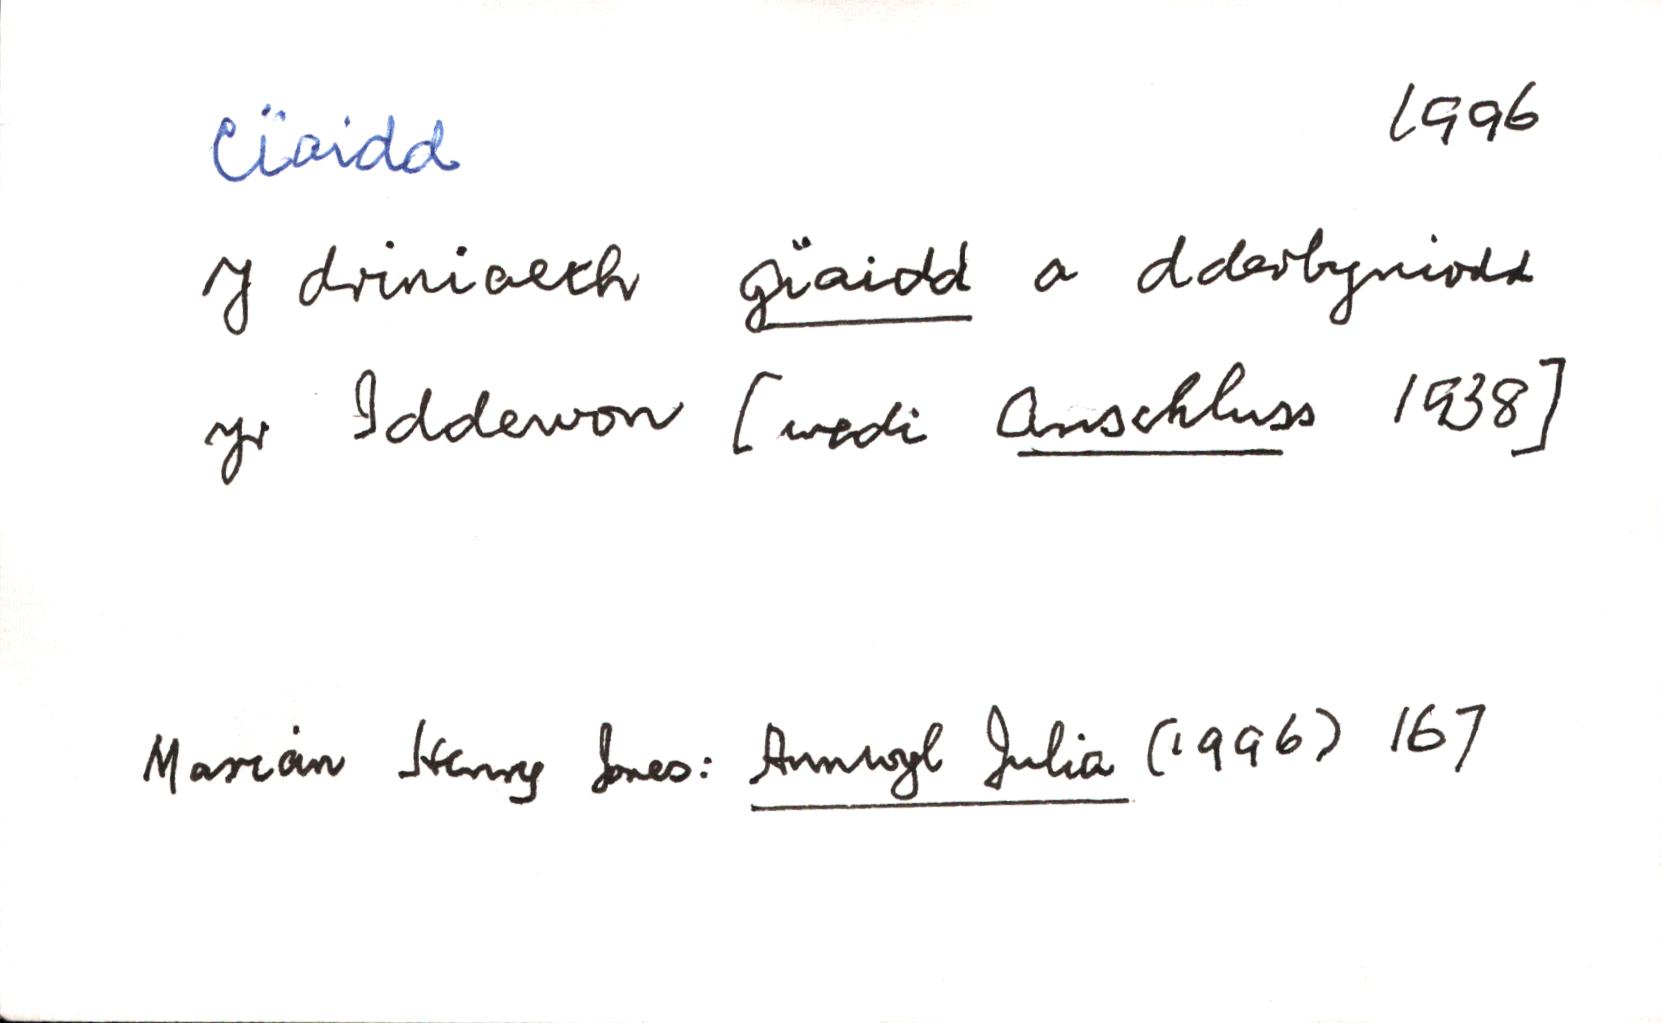 Cïaidd 1996
y driniaeth gïaidd a dderbyniodd
yr Iddewon [wedi Anschluss 1938]
Marian Henry Jones: Annwyl Julia (1996) 167